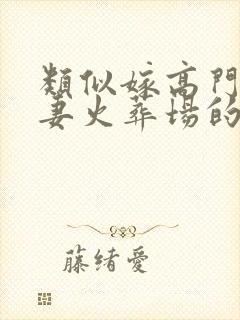 類似嫁高門
妻火葬場的
藤緒愛